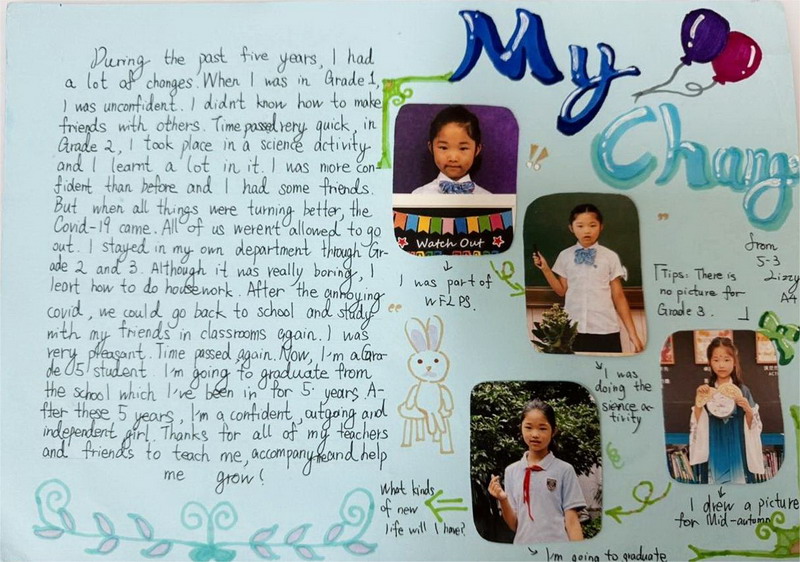 My
Chang
During the past five years, I had
a lot of changes. When I was in Grade 1,
I was unconfident. I didn't know how to make
friends with others. Time passed very quick, in
Grade 2, I took place in a science activity
and I learnt a lot in it. I was more con-
fident than before and I had some friends.
But when all things were turning better, the
Covid-19 came. All of us weren't allowed to go
out. I stayed in my own department through Gr-
ade 2 and 3. Although it was really boring, I
leart how to do housework. After the annoying
covid, we could go back to school and study
with my friends in classrooms again. I was
very pleasant. Time passed again. Now, I'm a Gra-
de 5 student. I'm going to graduate from
the school which I've been in for 5 years. A-
fter these 5 years, I'm a confident, outgoing and
independent girl. Thanks for all of my teachers
and friends to teach me, accompany me and help
me grow!
Watch Out
I was part of
WFLPS.
from
5-3
Lizzy
A4
Tips: There is
no picture for
Grade 3.
I was
doing the
sience ac-
tivity
I drew a picture
for Mid-autumn
I'm going to graduate
What kinds
of new
life will I have?